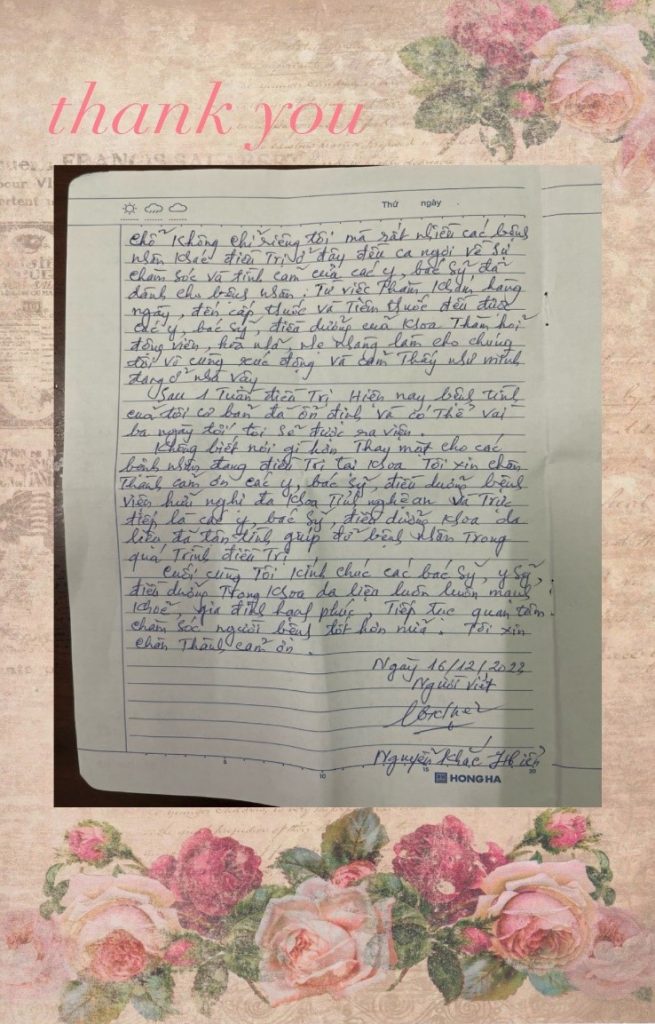 thank you
FRANCIS SALABERT
Thứ ngày
chỗ không chỉ riêng tôi mà rất nhiều các bệnh
nhân khác điều Trị ở đây đều ca ngợi về sự
chăm sóc và tình cảm của các y, bác sỹ đã
dành cho bệnh nhân. Từ việc Thăm khám hàng
ngày, đến cấp thuốc và Tiêm thuốc đều được
các y, bác sỹ, điều dưỡng của khoa Thăm hỏi
động viên, hòa nhã, nhẹ nhàng làm cho chúng
tôi vô cùng xúc động và cảm Thấy như mình
đang ở nhà vậy
Sau 1 Tuần điều Trị, Hiện nay bệnh tình
của tôi cơ bản đã ổn định và có Thể vài
ba ngày tới tôi sẽ được ra viện.
Không biết nói gì hơn Thay mặt cho các
bệnh nhân đang điều Trị tại khoa Tôi xin chân
Thành cảm ơn các y, bác sỹ, điều dưỡng bệnh
viện hữu nghị đa khoa Tỉnh nghệ an và Trực
tiếp là các y, bác sỹ, điều dưỡng khoa da
liễu đã tận tình giúp đỡ bệnh nhân Trong
quá Trình điều Trị
Cuối cùng Tôi kính chúc các bác sỹ, y sỹ,
điều dưỡng Trong khoa da liễu luôn luôn mạnh
khoẻ, gia đình hạnh phúc, Tiếp tục quan tâm
chăm sóc người bệnh tốt hơn nữa. Tôi xin
chân Thành cảm ơn.
Ngày 16/12/2023
Người viết
Nguyễn Khắc
5 10 15 20
HONG HA